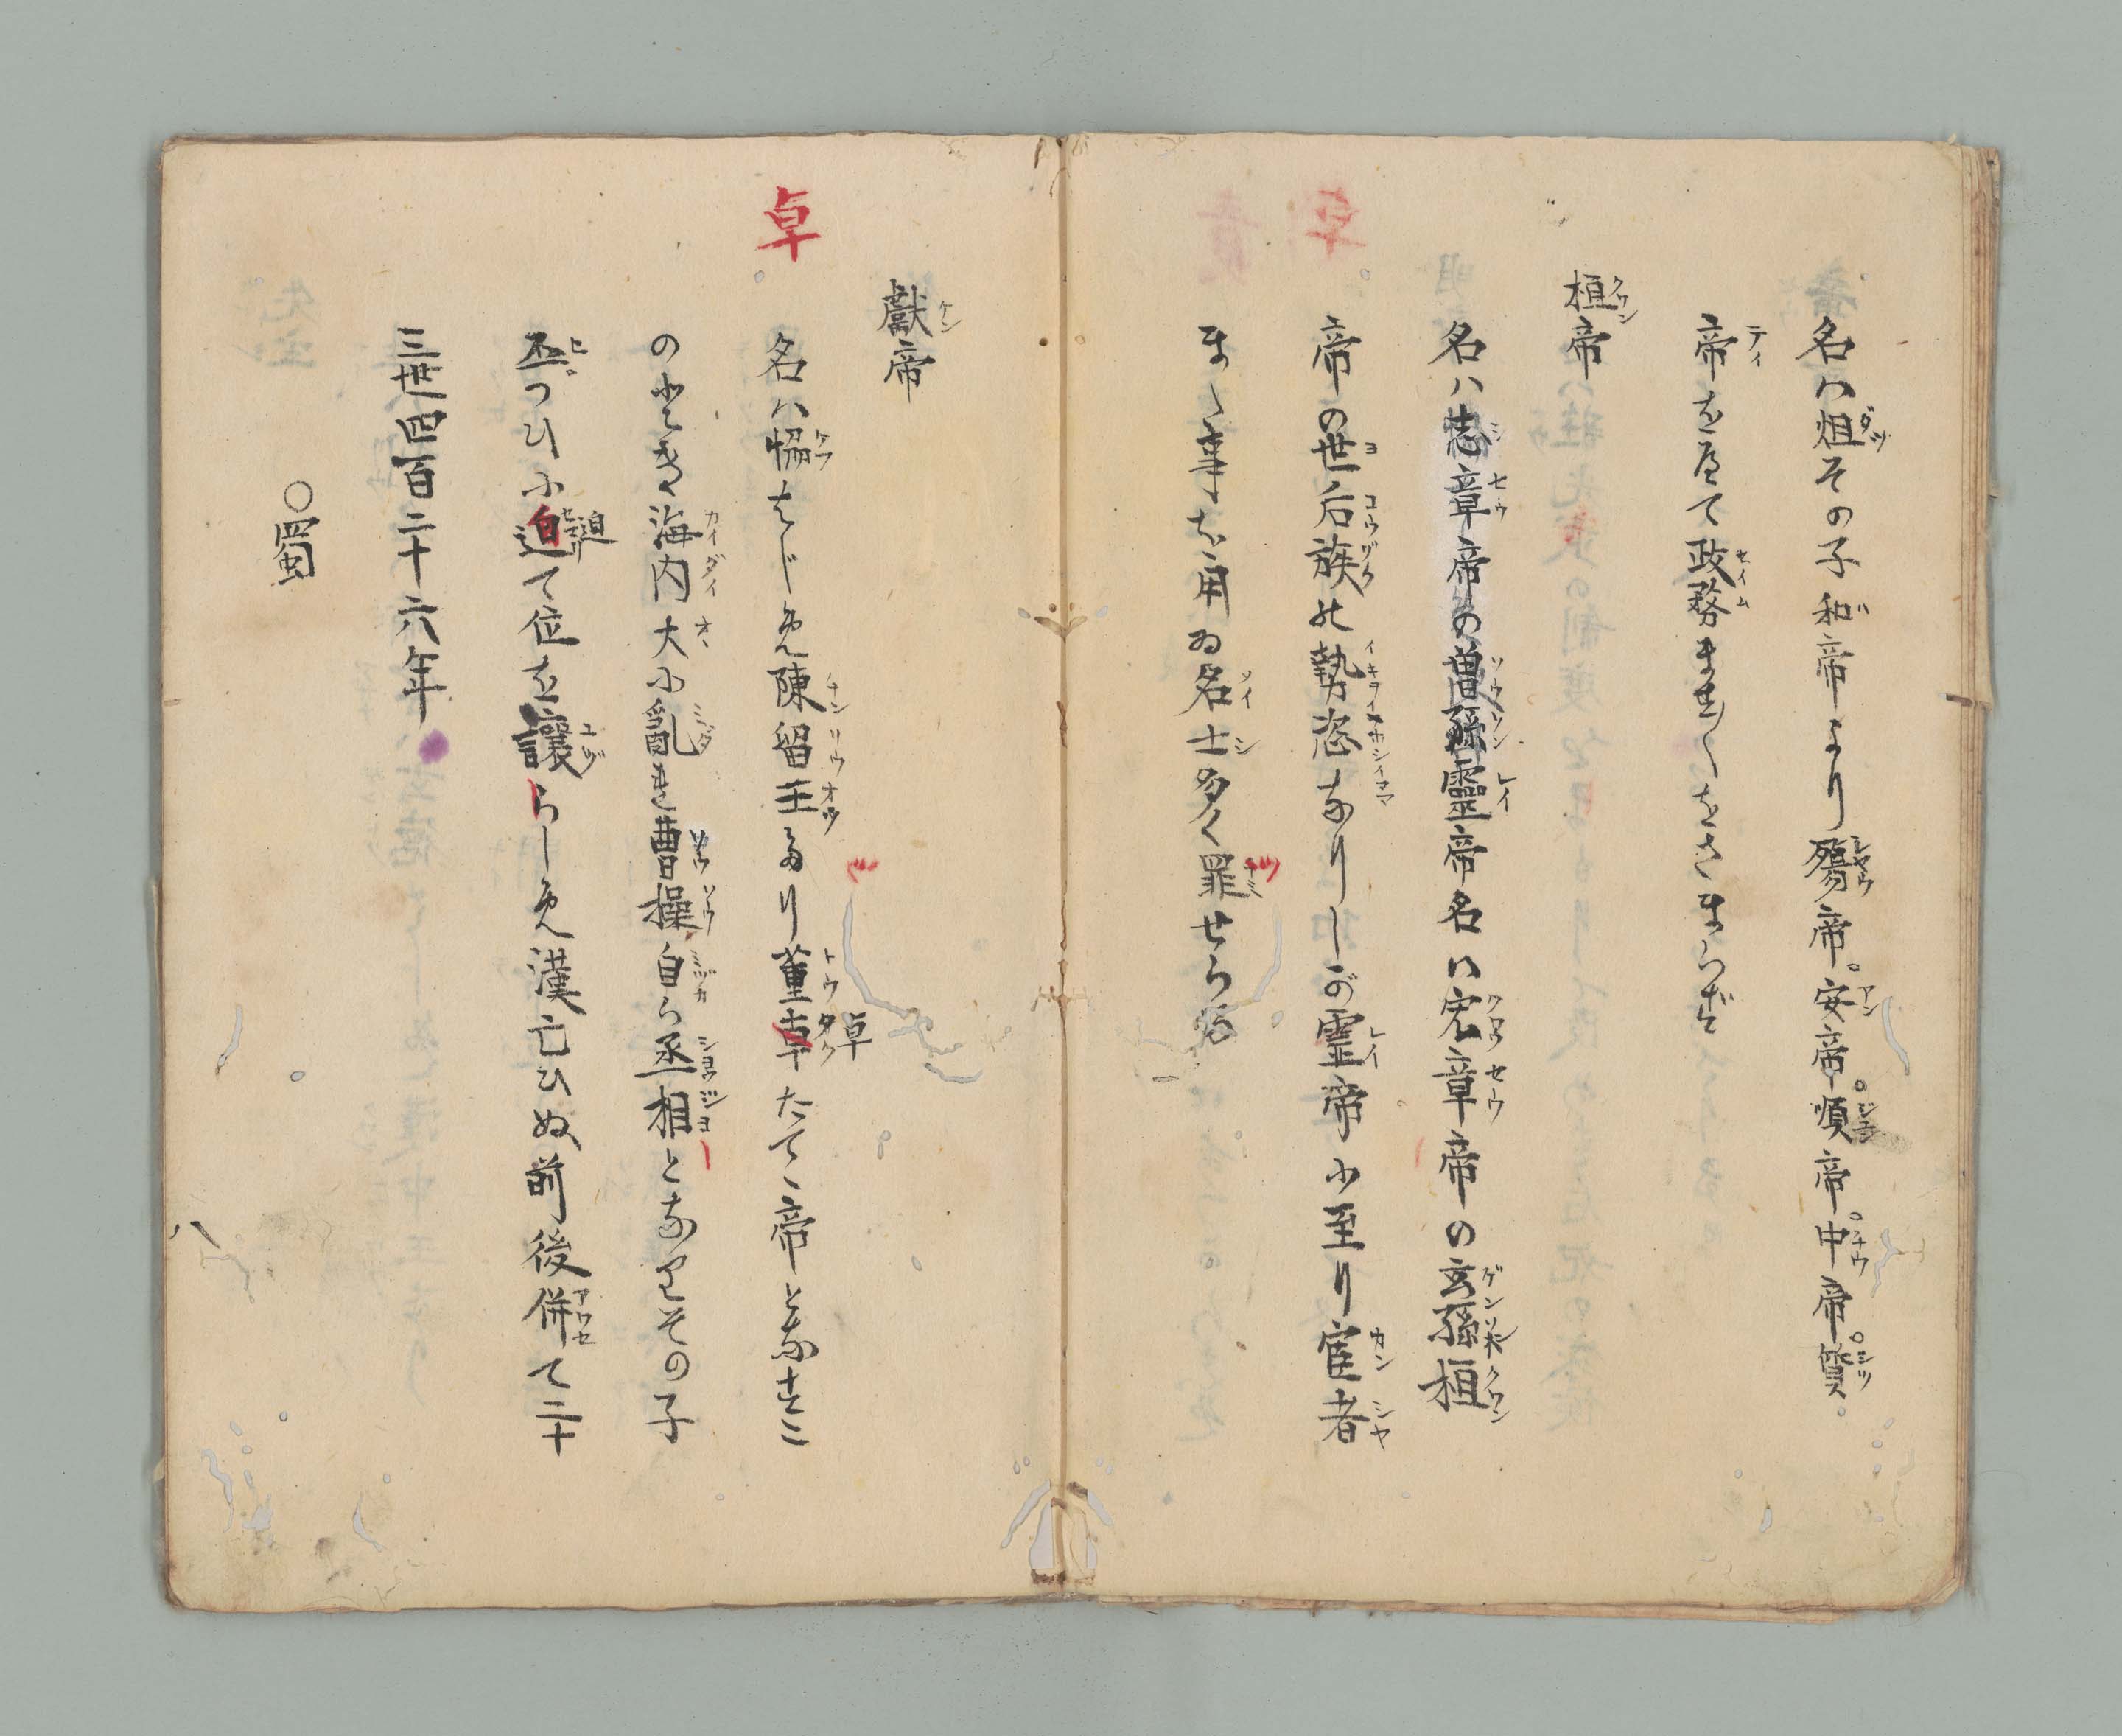 名ハ炟その子和帝より殤帝。安帝。順帝。中帝。質。
帝を歴て政務ます〳〵をさまらず
桓帝
名ハ志章帝の曽孫靈帝名ハ宏章帝の玄孫桓
帝の世后族の勢恣なりしが霊帝に至り宦者
まゝ事を用ゐ名士多く罪せらる
卓
獻帝
名ハ恊はじめ陳留王たり董卓たてゝ帝となすこ
のとき海内大に亂き曹操自ら丞相となりその子
丕つひに迫て位を讓らしめ漢亡ひぬ前後併て二十
三世四百二十六年
〇蜀